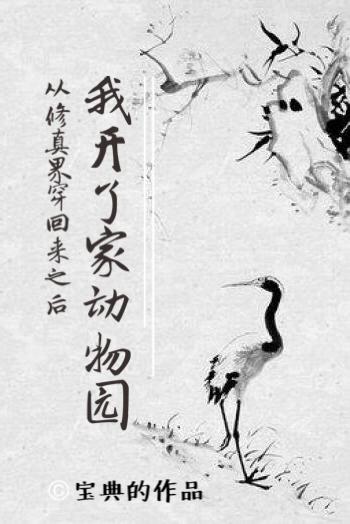 我开了家动物园
从修真界穿回来之后
©宝典的作品